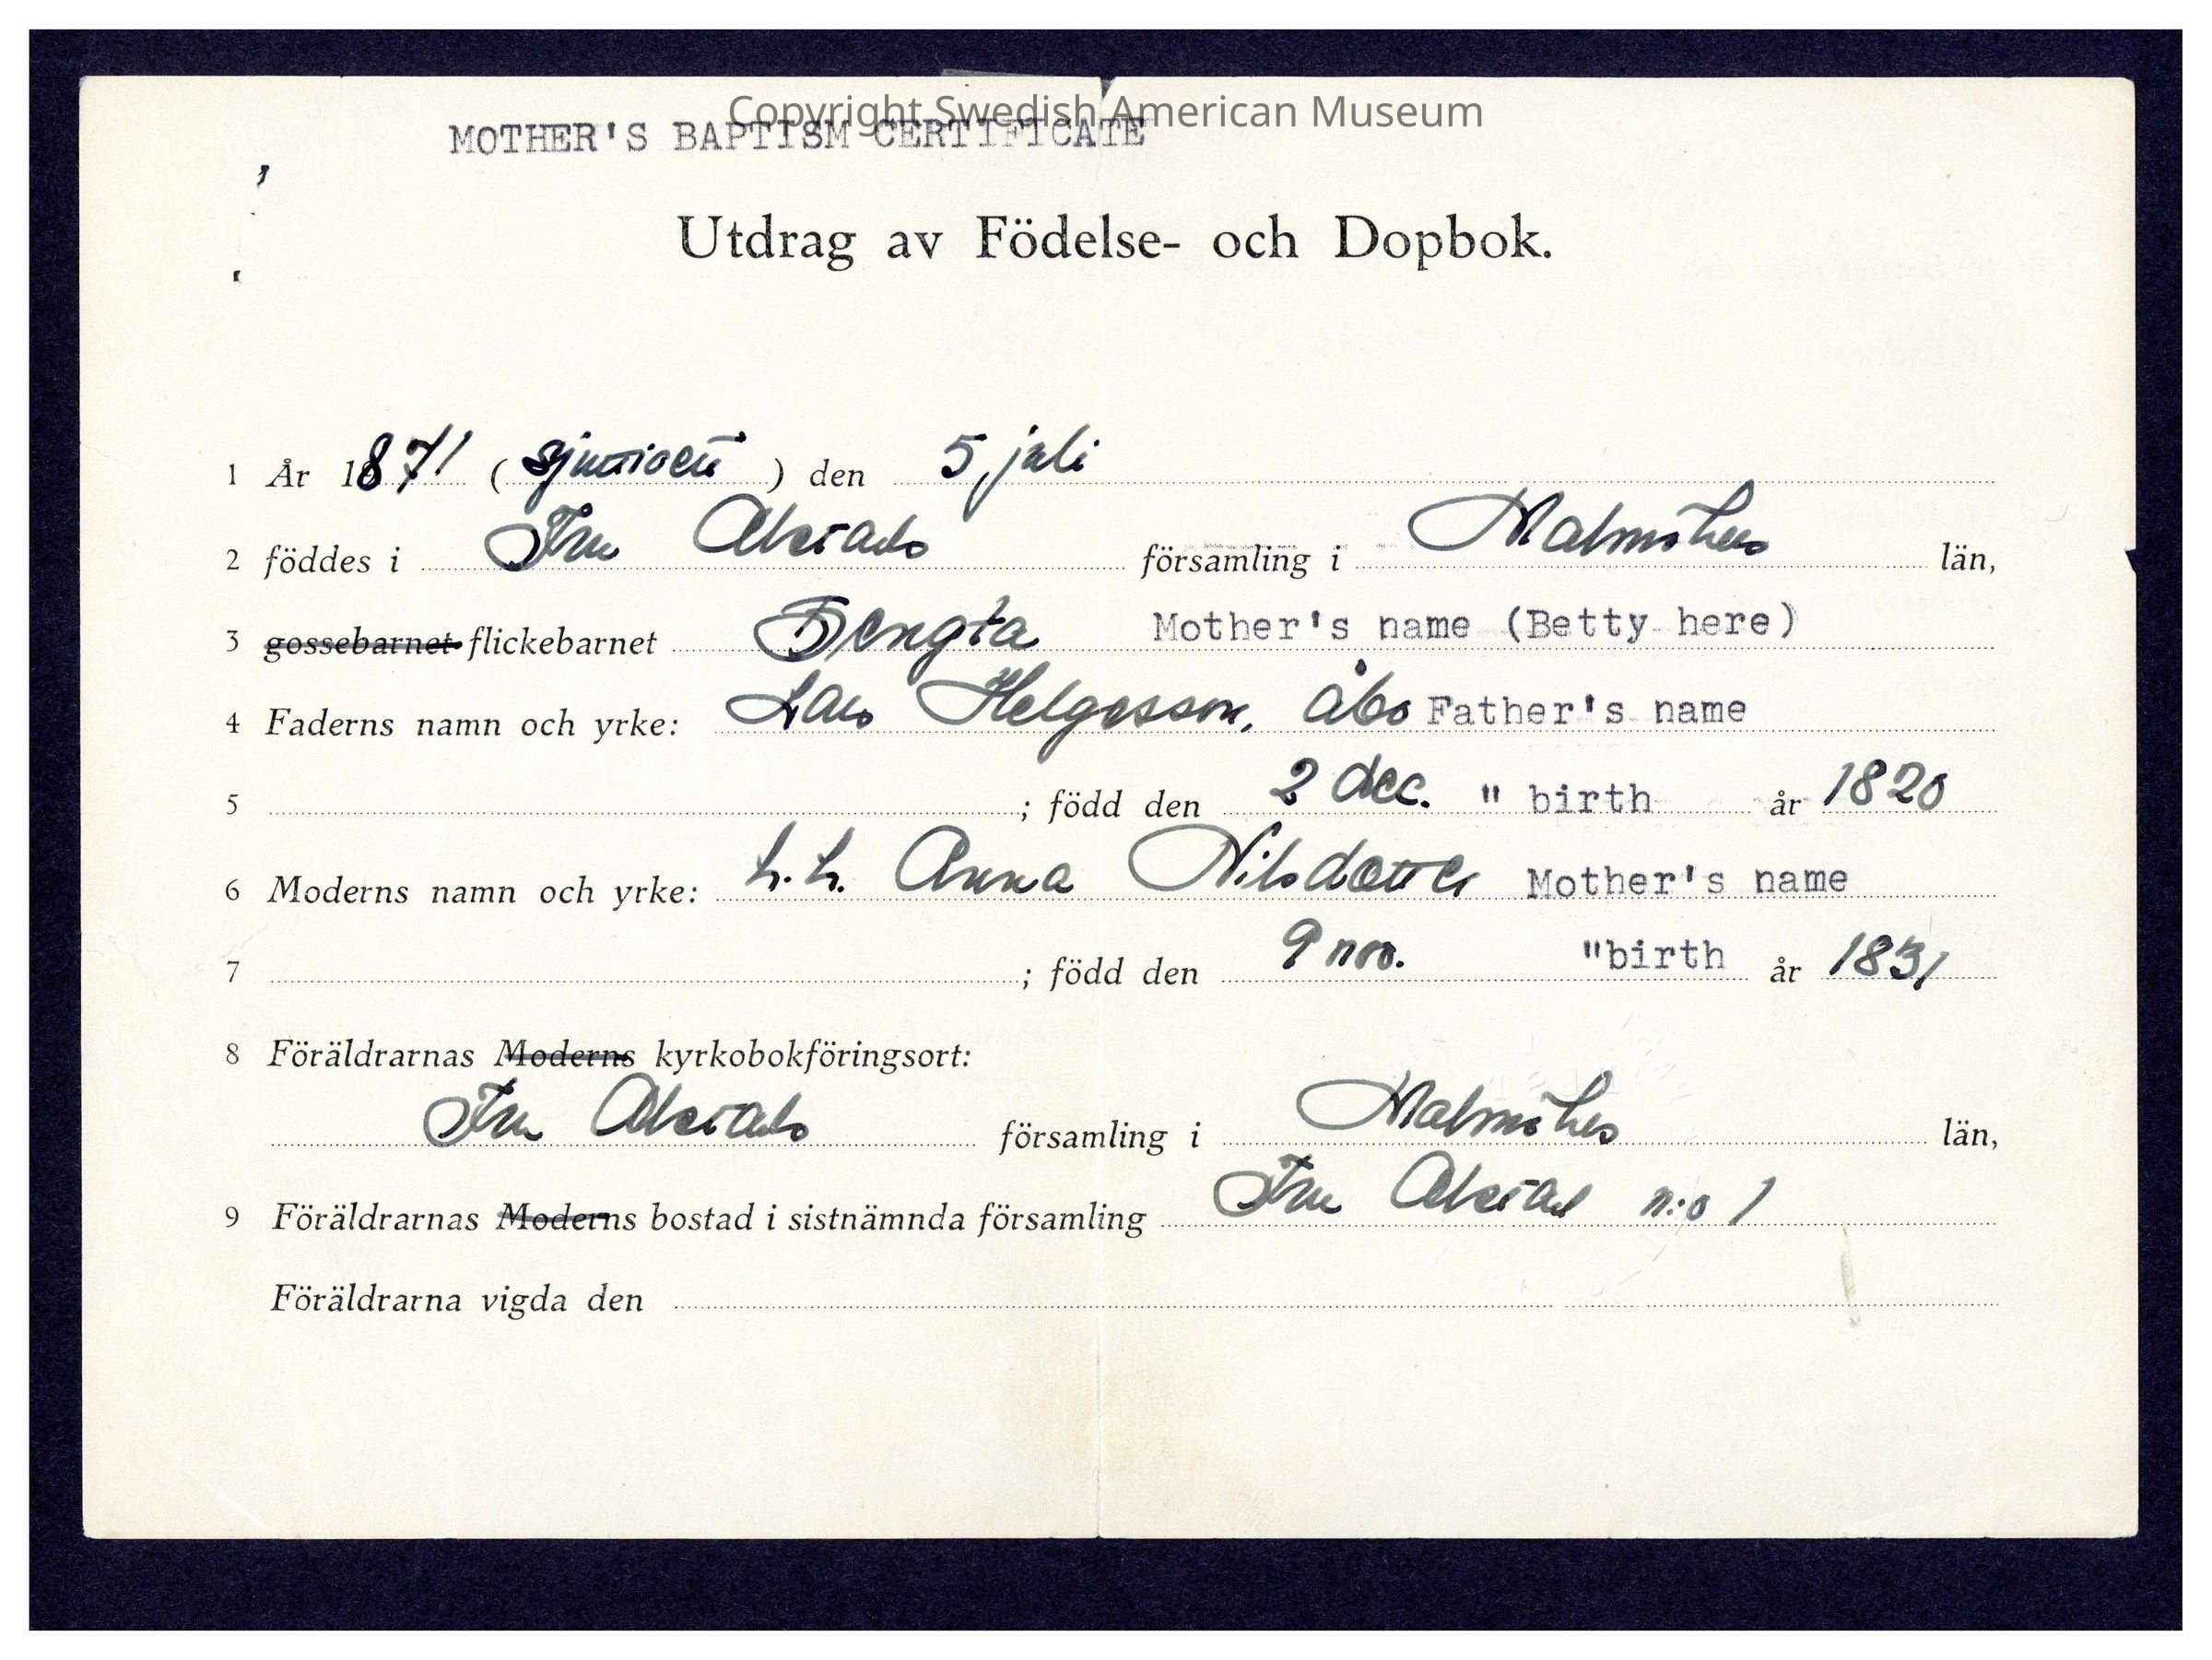 Copyright Swedish American Museum
MOTHER'S BAPTISM CERTIFICATE
Utdrag av Födelse- och Dopbok.
1 År 1871 ( sjuttioett ) den 5 juli
2 föddes i Fru Alstads församling i Malmöhus län,
3 gossebarnet flickebarnet Bengta Mother's name (Betty here)
4 Faderns namn och yrke: Lars Helgesson, åbo Father's name
5 ; född den 2 dec. " birth år 1820
6 Moderns namn och yrke: h.h. Anna Nilsdotter Mother's name
7 ; född den 9 nov. "birth år 1831
8 Föräldrarnas Moderns kyrkobokföringsort:
Fru Alstads församling i Malmöhus län,
9 Föräldrarnas Moderns bostad i sistnämnda församling Fru Alstad n:o 1
Föräldrarna vigda den